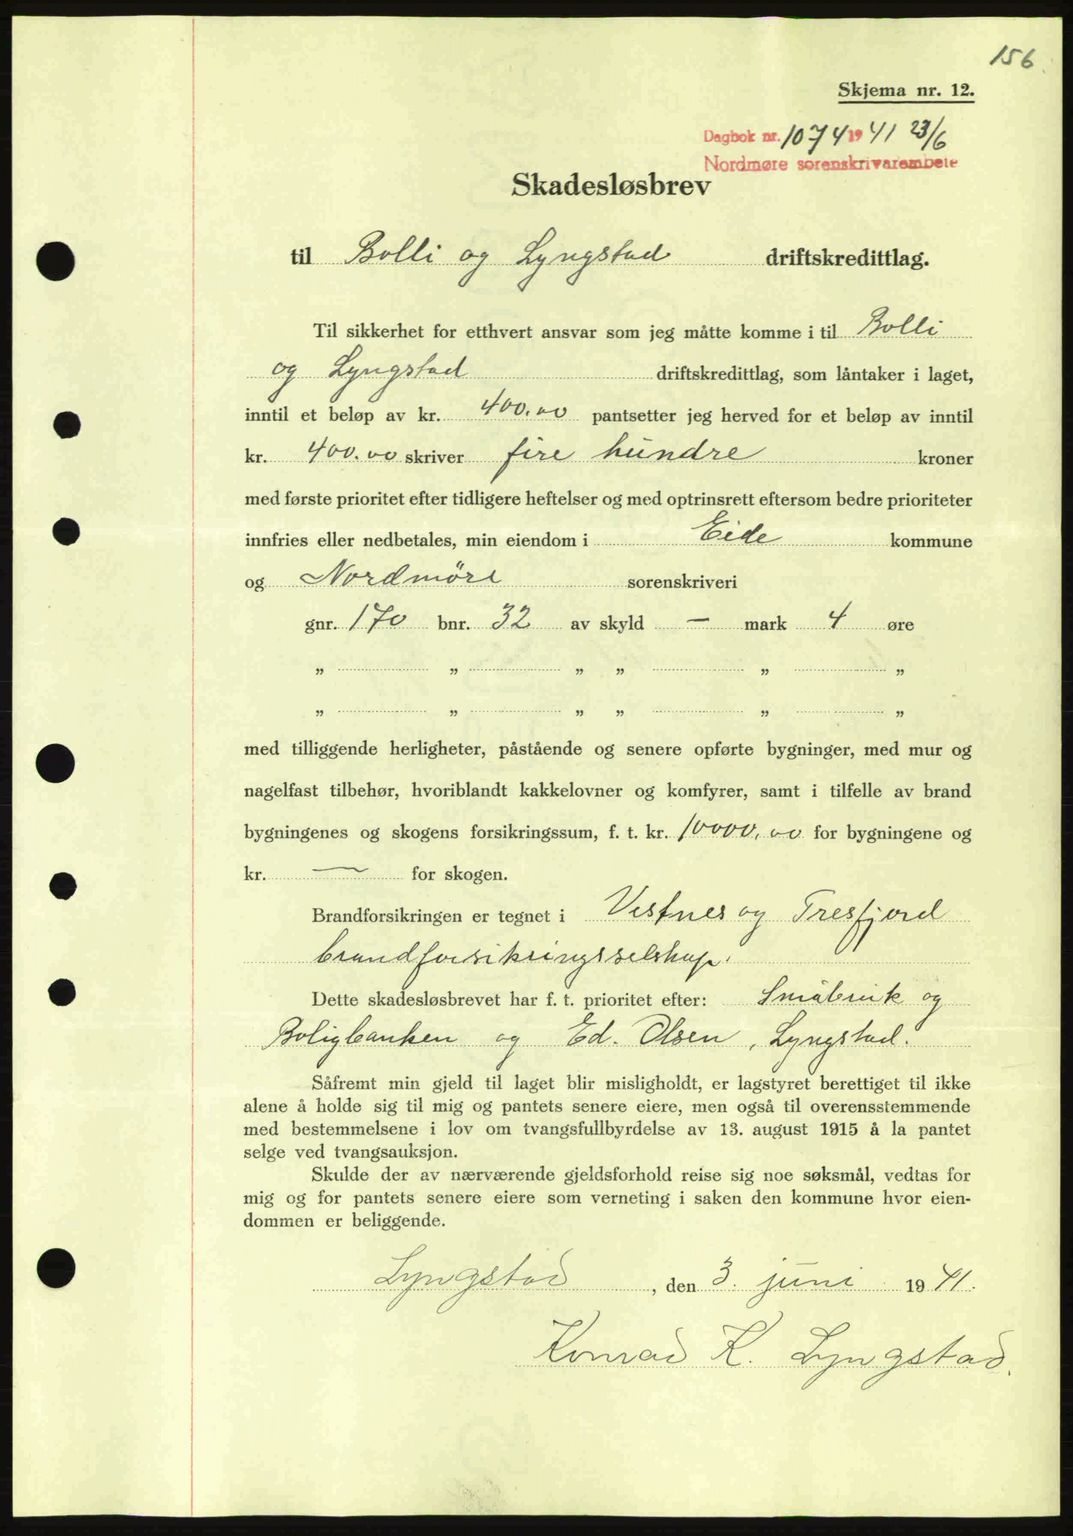 156
Skjema nr. 12.
Dagbok nr. 1074 1941 23/6
Nordmøre sorenskrivarembete
Skadesløsbrev
til Bolli og Lyngstad driftskredittlag.
Til sikkerhet for etthvert ansvar som jeg måtte komme i til Bolli
og Lyngstad driftskredittlag, som låntaker i laget,
inntil et beløp av kr. 400.00 pantsetter jeg herved for et beløp av inntil
kr. 400.00 skriver fire hundre kroner
med første prioritet efter tidligere heftelser og med optrinsrett eftersom bedre prioriteter
innfries eller nedbetales, min eiendom i Eide kommune
og Nordmöre sorenskriveri
gnr. 170 bnr. 32 av skyld — mark 4 øre
„ „ „ „ „ „
„ „ „ „ „ „
med tilliggende herligheter, påstående og senere opførte bygninger, med mur og
nagelfast tilbehør, hvoriblandt kakkelovner og komfyrer, samt i tilfelle av brand
bygningenes og skogens forsikringssum, f. t. kr. 10000,00 for bygningene og
kr. — for skogen.
Brandforsikringen er tegnet i Vestnes og Tresfjord
brandforsikringsselskap.
Dette skadesløsbrevet har f. t. prioritet efter: Småbruk og
Boligbanken og Ed. Olsen, Lyngstad.
Såfremt min gjeld til laget blir misligholdt, er lagstyret berettiget til ikke
alene å holde sig til mig og pantets senere eiere, men også til overensstemmende
med bestemmelsene i lov om tvangsfullbyrdelse av 13. august 1915 å la pantet
selge ved tvangsauksjon.
Skulde der av nærværende gjeldsforhold reise sig noe søksmål, vedtas for
mig og for pantets senere eiere som verneting i saken den kommune hvor eien-
dommen er beliggende.
Lyngstad, den 3. juni 1941.
Konrad K. Lyngstad.